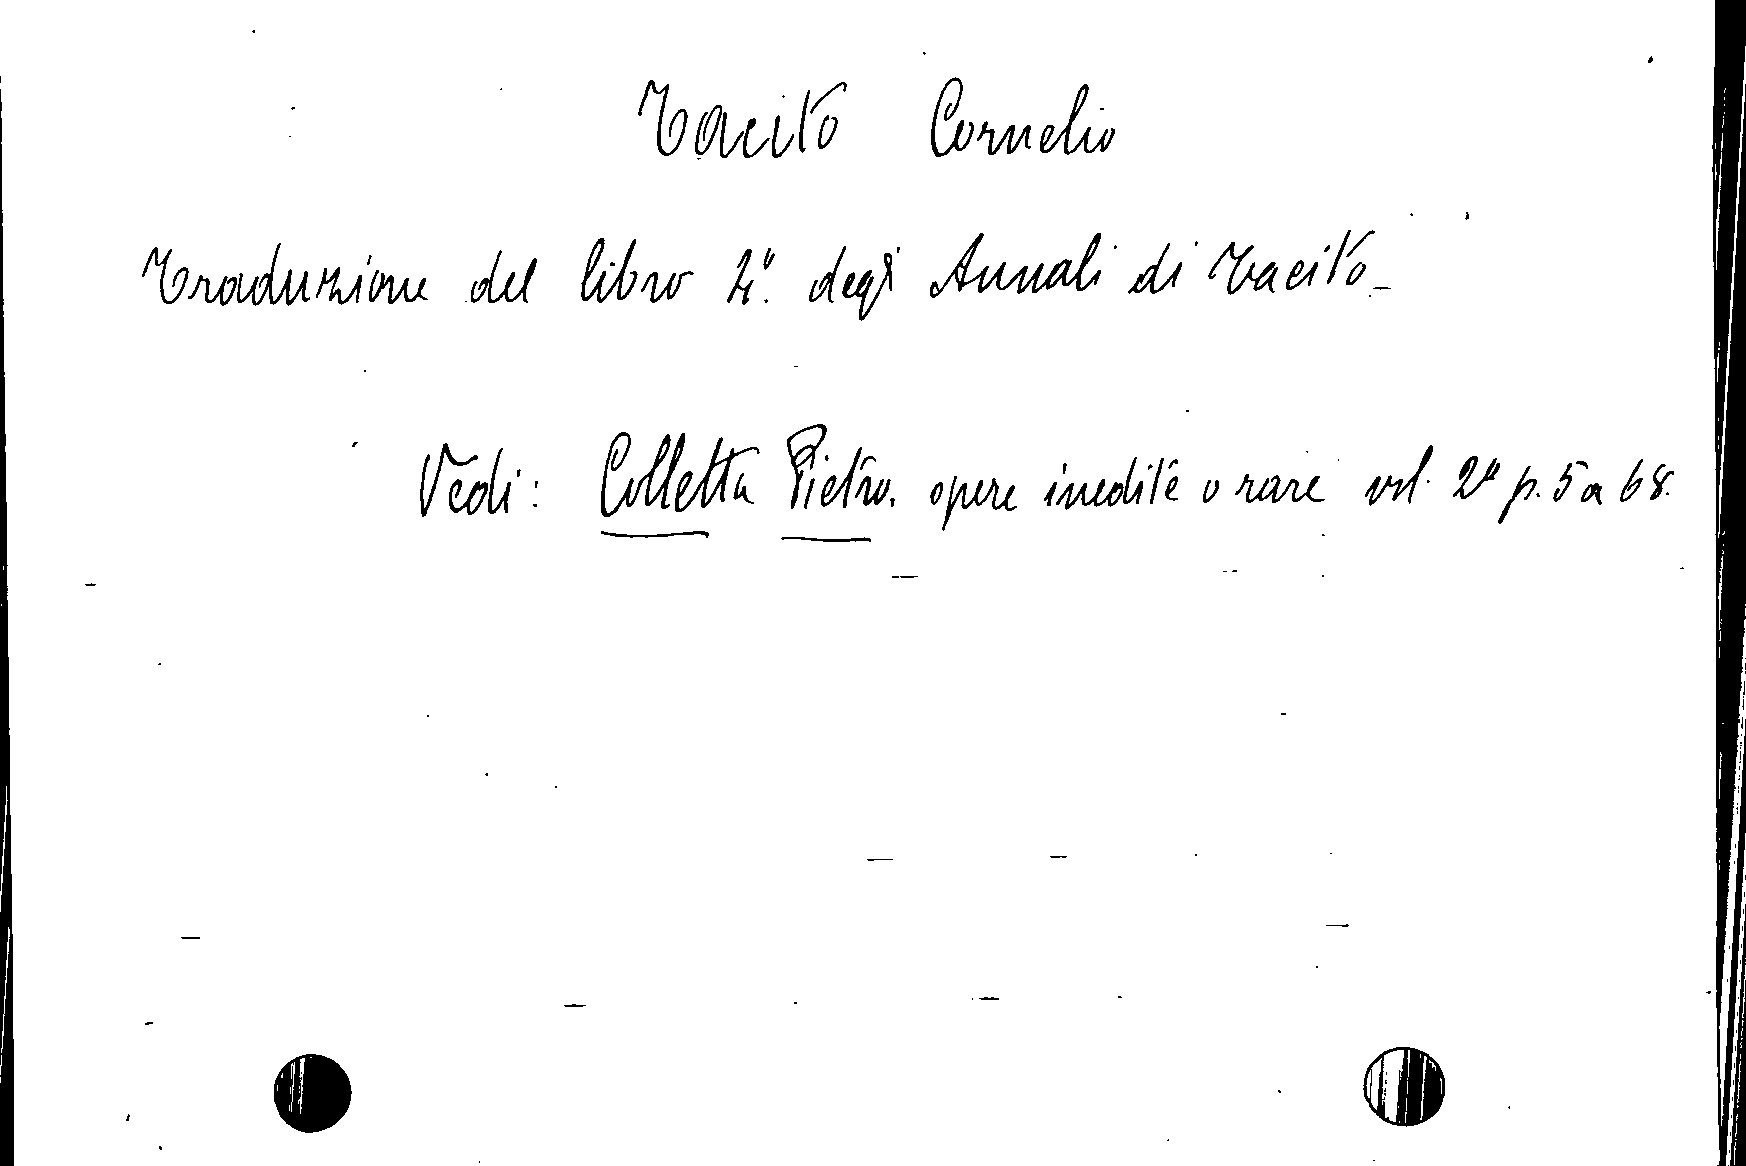 Tacito Cornelio
Traduzione del libro 4º. degli Annali di Tacito_
Vedi: Colletta Pietro. opere inedite o rare vol. 2º p. 5 a 68.